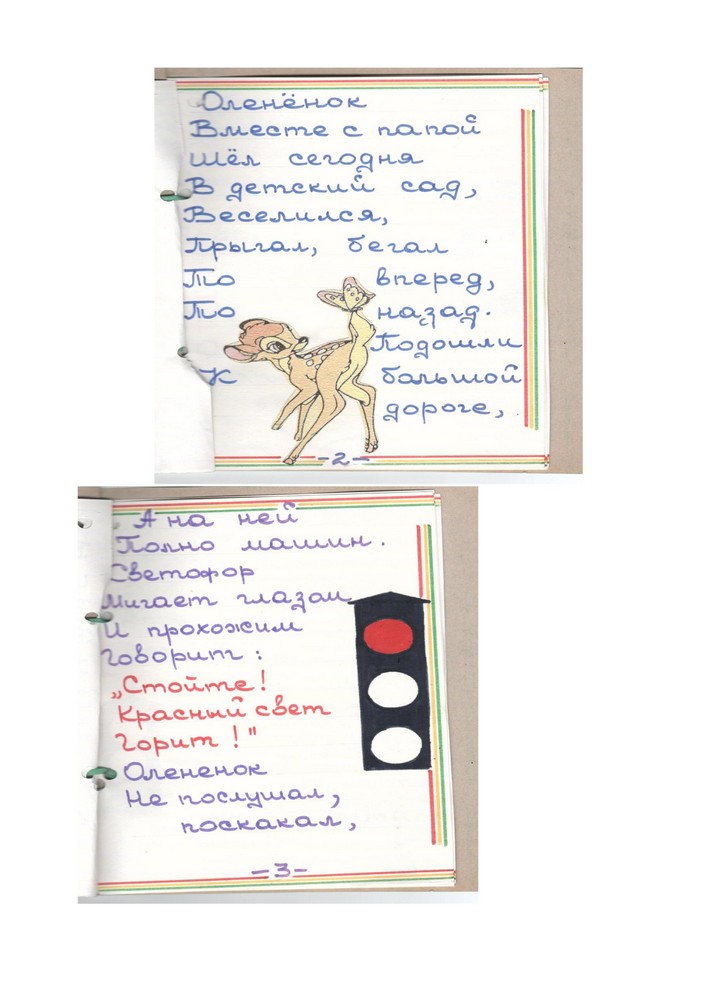 Оленёнок
Вместе с папой
Шёл сегодня
В детский сад,
Веселился,
Прыгал, бегал
То вперед,
То назад.
Подошли
К большой
дороге,
-2-
А на ней
Полно машин.
Светофор
Мигает глазом
И прохожим
Говорит:
„Стойте!
Красный свет
Горит!"
Олененок
Не послушал,
поскакал,
-3-